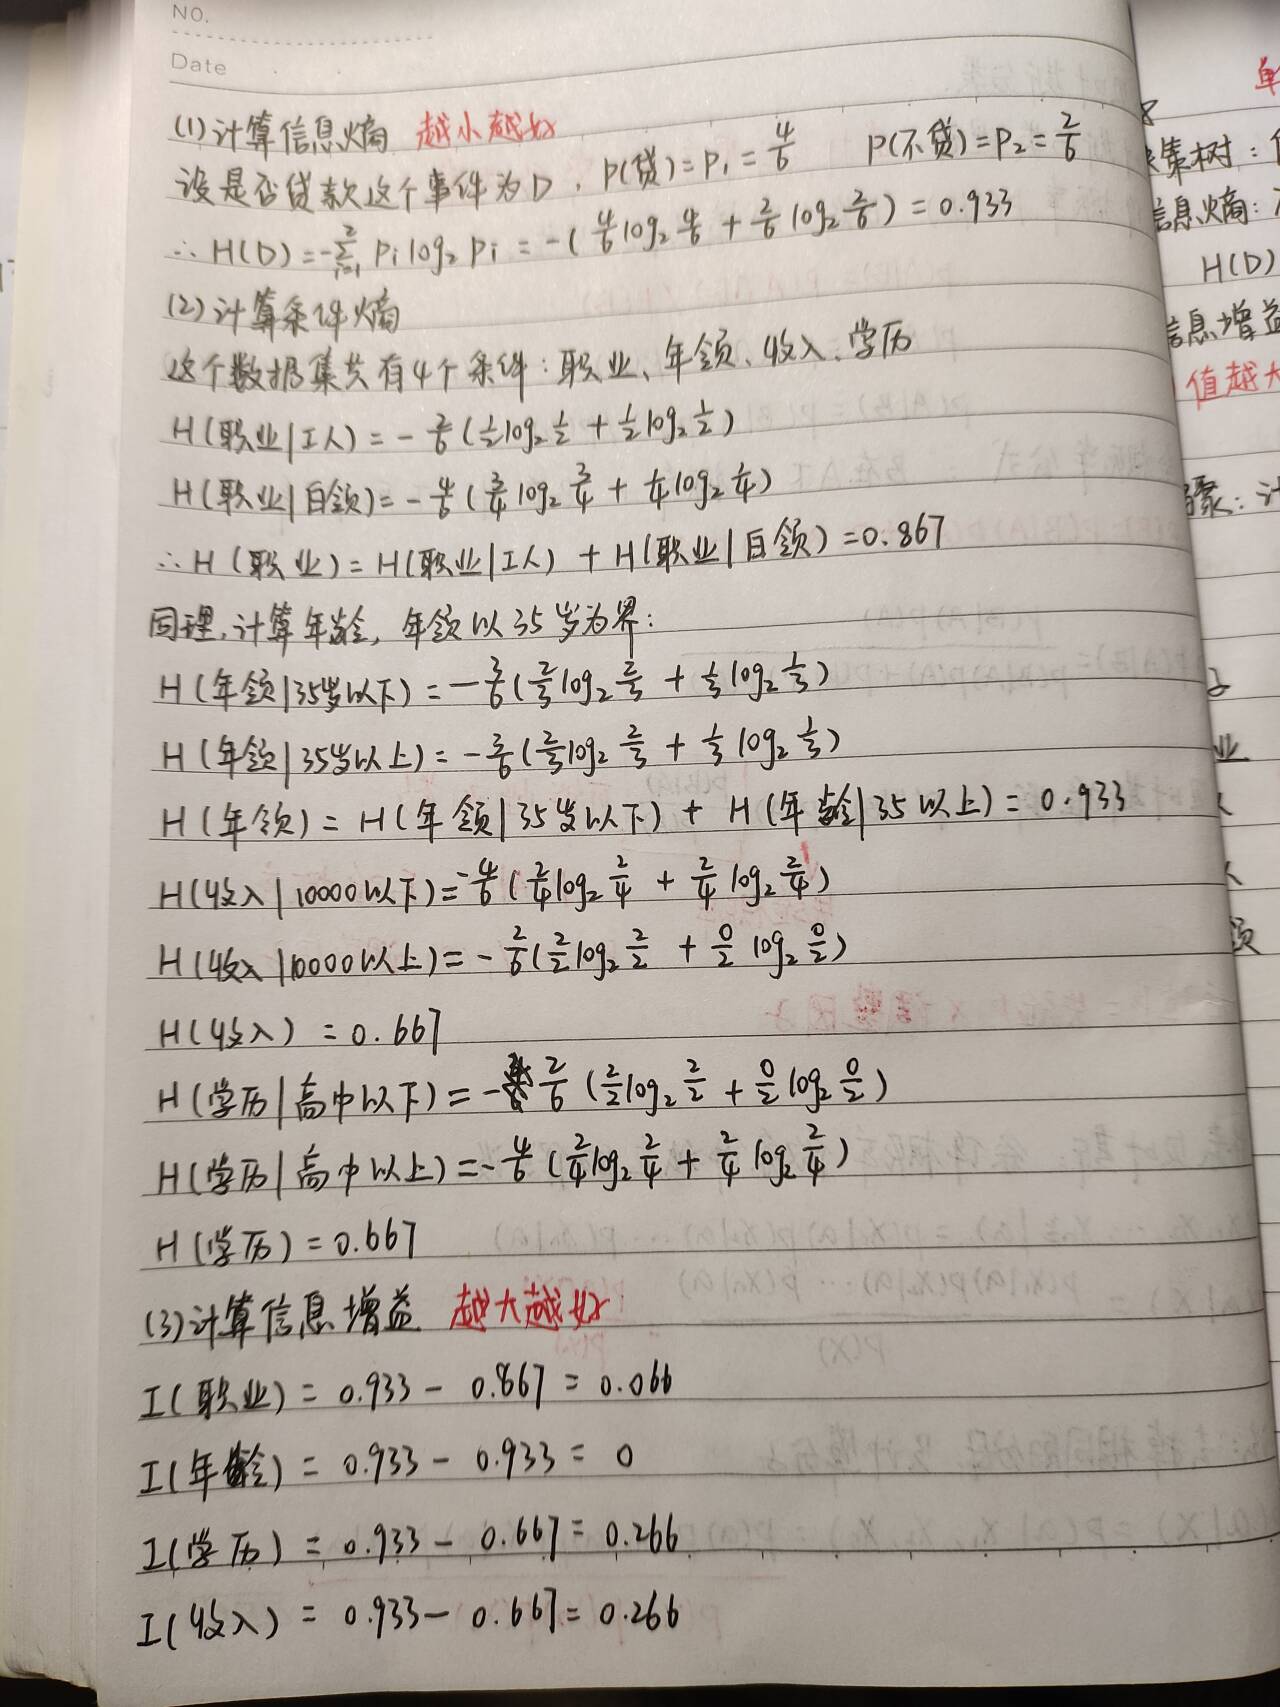 NO.
Date
(1)计算信息熵 越小越好
设是否贷款这个事件为D，P(贷)=P₁=4/6 P(不贷)=P₂=2/6
∴H(D)=-∑²ᵢ₌₁ Pi log₂ Pi = -(4/6 log₂ 4/6 + 2/6 log₂ 2/6) = 0.933
(2)计算条件熵
这个数据集共有4个条件：职业、年领、收入、学历
H(职业|工人) = - 2/6 (1/2 log₂ 1/2 + 1/2 log₂ 1/2)
H(职业|白领) = - 4/6 (3/4 log₂ 3/4 + 1/4 log₂ 1/4)
∴H(职业) = H(职业|工人) + H(职业|白领) = 0.867
同理，计算年龄，年领以35岁为界：
H(年领|35岁以下) = - 3/6 (2/3 log₂ 2/3 + 1/3 log₂ 1/3)
H(年领|35岁以上) = - 3/6 (2/3 log₂ 2/3 + 1/3 log₂ 1/3)
H(年领) = H(年领|35岁以下) + H(年龄|35以上) = 0.933
H(收入|10000以下) = - 4/6 (2/4 log₂ 2/4 + 2/4 log₂ 2/4)
H(收入|10000以上) = - 2/6 (2/2 log₂ 2/2 + 0/2 log₂ 0/2)
H(收入) = 0.667
H(学历|高中以下) = - 2/6 (2/2 log₂ 2/2 + 0/2 log₂ 0/2)
H(学历|高中以上) = - 4/6 (2/4 log₂ 2/4 + 2/4 log₂ 2/4)
H(学历) = 0.667
(3)计算信息增益 越大越好
I(职业) = 0.933 - 0.867 = 0.066
I(年龄) = 0.933 - 0.933 = 0
I(学历) = 0.933 - 0.667 = 0.266
I(收入) = 0.933 - 0.667 = 0.266
策树：
信息熵：
H(D)
信息增益
值越大
骤：
业